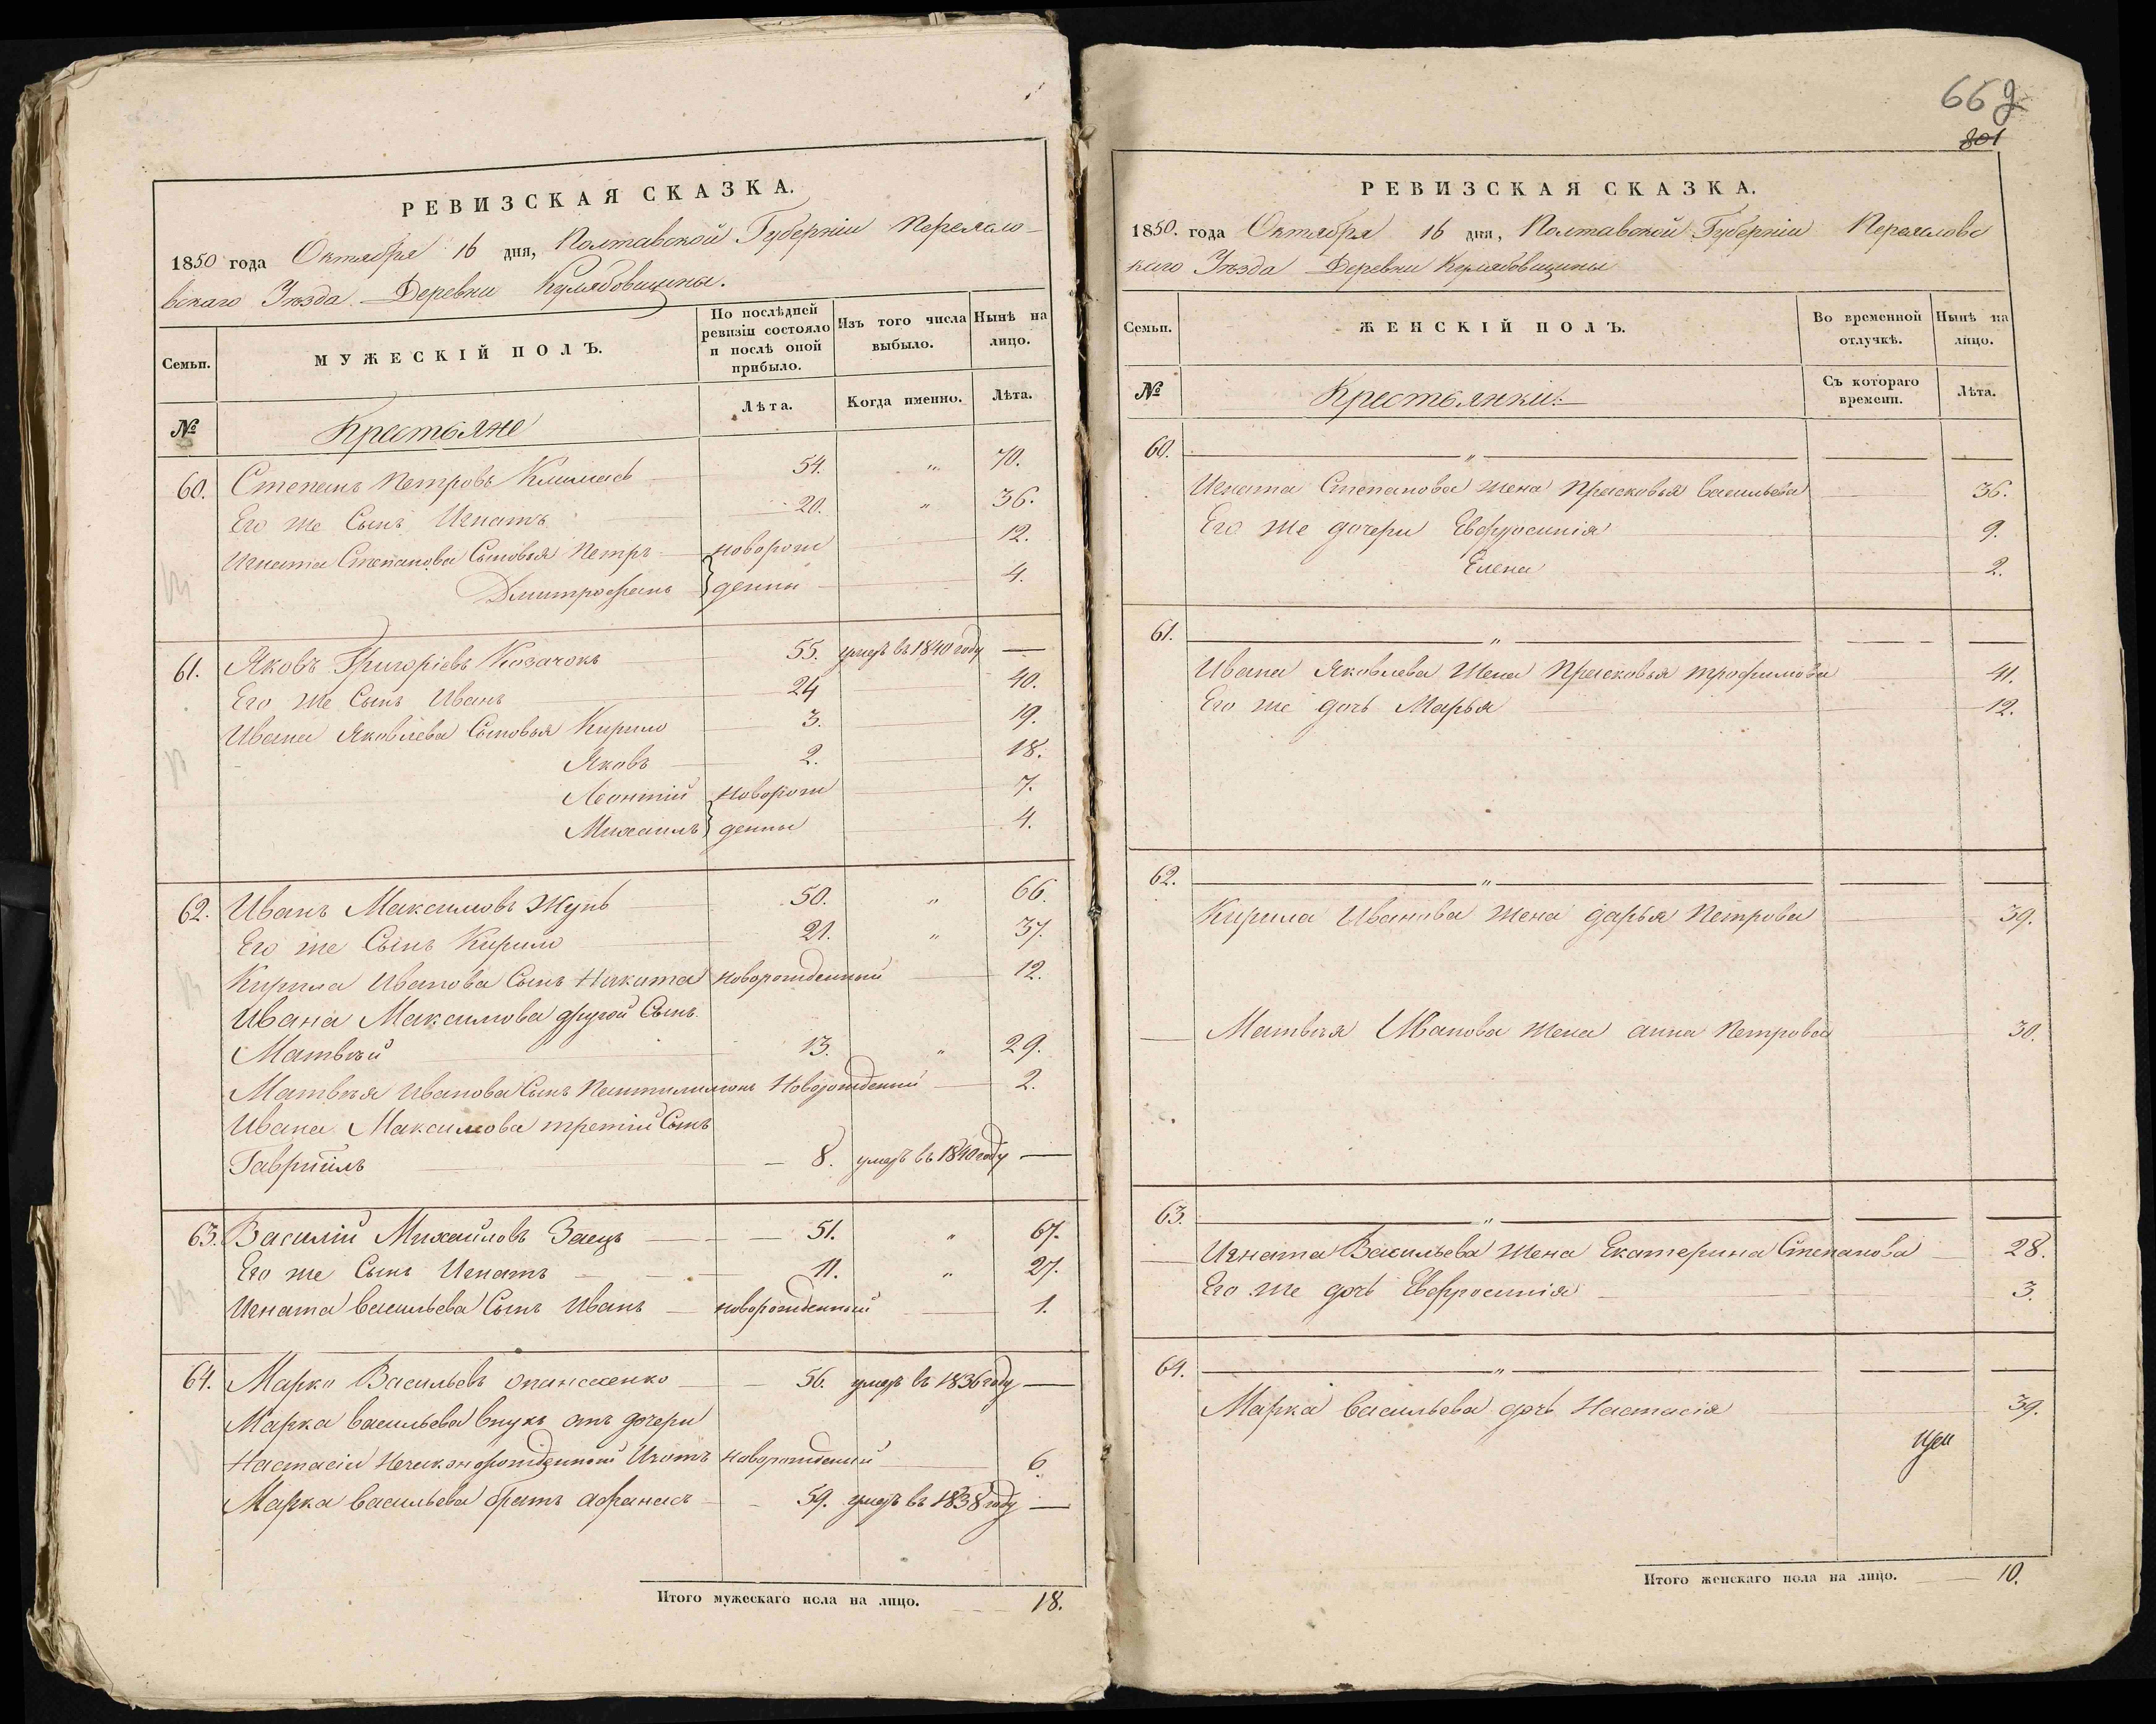 РЕВИЗСКАЯ СКАЗКА.
1850 года Октября 16 дня, Полтавской Губерніи Переясло-
вскаго Уѣзда Деревни Кулябовщины.
Семьи.
МУЖЕСКІЙ ПОЛЪ.
По послѣдней
ревизіи состояло
и послѣ оной
прибыло.
Изъ того числа
выбыло.
Нынѣ на
лицо.
№
Крестьяне
Лѣта.
Когда именно.
Лѣта.
60. Степанъ Петровъ Климась 54. " 70.
Его же Сынъ Игнатъ 20. " 36.
Игната Степанова Сыновья Петръ новорож 12.
Дмитрофанъ денны 4.
61. Яковъ Григоріевъ Козачокъ 55. умеръ въ 1840 году —
Его же Сынъ Иванъ 24 40.
Ивана Яковлева Сыновья Кирило 3. 19.
Яковъ 2. 18.
Леонтій новорож 7.
Михаилъ денны 4.
62. Иванъ Максимовъ Жупъ 50. " 66.
Его же Сынъ Кирило 21. " 37.
Кирила Иванова Сынъ Никита новорожденный 12.
Ивана Максимова другой Сынъ
Матвѣй 13. " 29.
Матвѣя Иванова Сынъ Пантилимонъ Новорожденный 2.
Ивана Максимова третій Сынъ
Гавріилъ 8. умеръ въ 1840 году —
63. Василій Михайловъ Заецъ 51. " 67.
Его же Сынъ Игнатъ 11. " 27.
Игната Васильева Сынъ Иванъ новорожденный 1.
64. Марко Васильевъ Опанасенко 56. умеръ въ 1836 году —
Марка Васильева внукъ отъ дочери
Настасіи Незаконорожденный новорожденный 6.
Марка Васильева братъ Афанасъ 59. умеръ въ 1838 году —
Итого мужескаго пола на лицо. 18.
669
801
РЕВИЗСКАЯ СКАЗКА.
1850. года Октября 16 дня, Полтавской Губерніи Переяславс
каго Уѣзда Деревни Кулябовщины
Семьи.
ЖЕНСКІЙ ПОЛЪ.
Во временной
отлучкѣ.
Нынѣ на
лицо.
№
Крестьянки.
Съ котораго
времени.
Лѣта.
60. "
Игната Степанова жена Прасковья Васильева 36.
Его же дочери Евфросинія 9.
Елена 2.
61. "
Ивана Яковлева Жена Прасковья Трофимова 41.
Его же дочь Марья 12.
62. "
Кирила Иванова жена Дарья Петрова 39.
Матвѣя Иванова жена Анна Петрова 30.
63. "
Игната Васильева жена Екатерина Степанова 28.
Его же дочь Евфросинія 3.
64. "
Марка Васильева дочь Настасія 39.
Итого женскаго пола на лицо. 10.